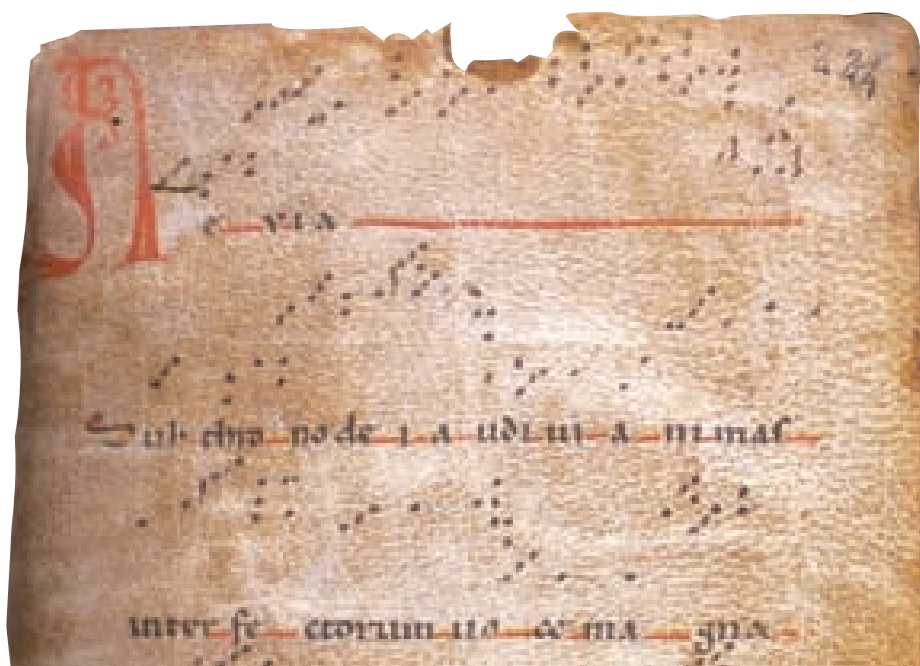 A e vi a
Sub thro no de i a udi ui a ni mas
inter fe ctorum uo ce ma gna